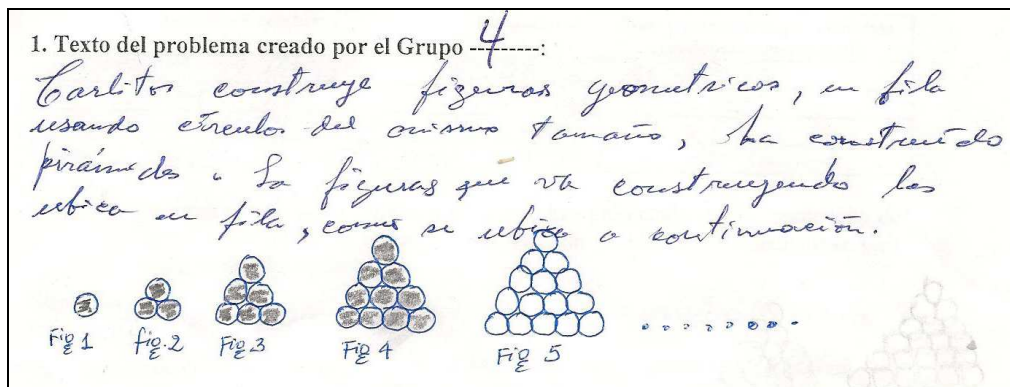 1. Texto del problema creado por el Grupo ---4------:
Carlitos construye figuras geometricas, en fila
usando círculos del mismo tamaño, ha construido
pirámides. La figuras que va construyendo las
ubica en fila, como se ubica a continuación.
Fig 1 fig.2 Fig 3 Fig 4 Fig 5 .........